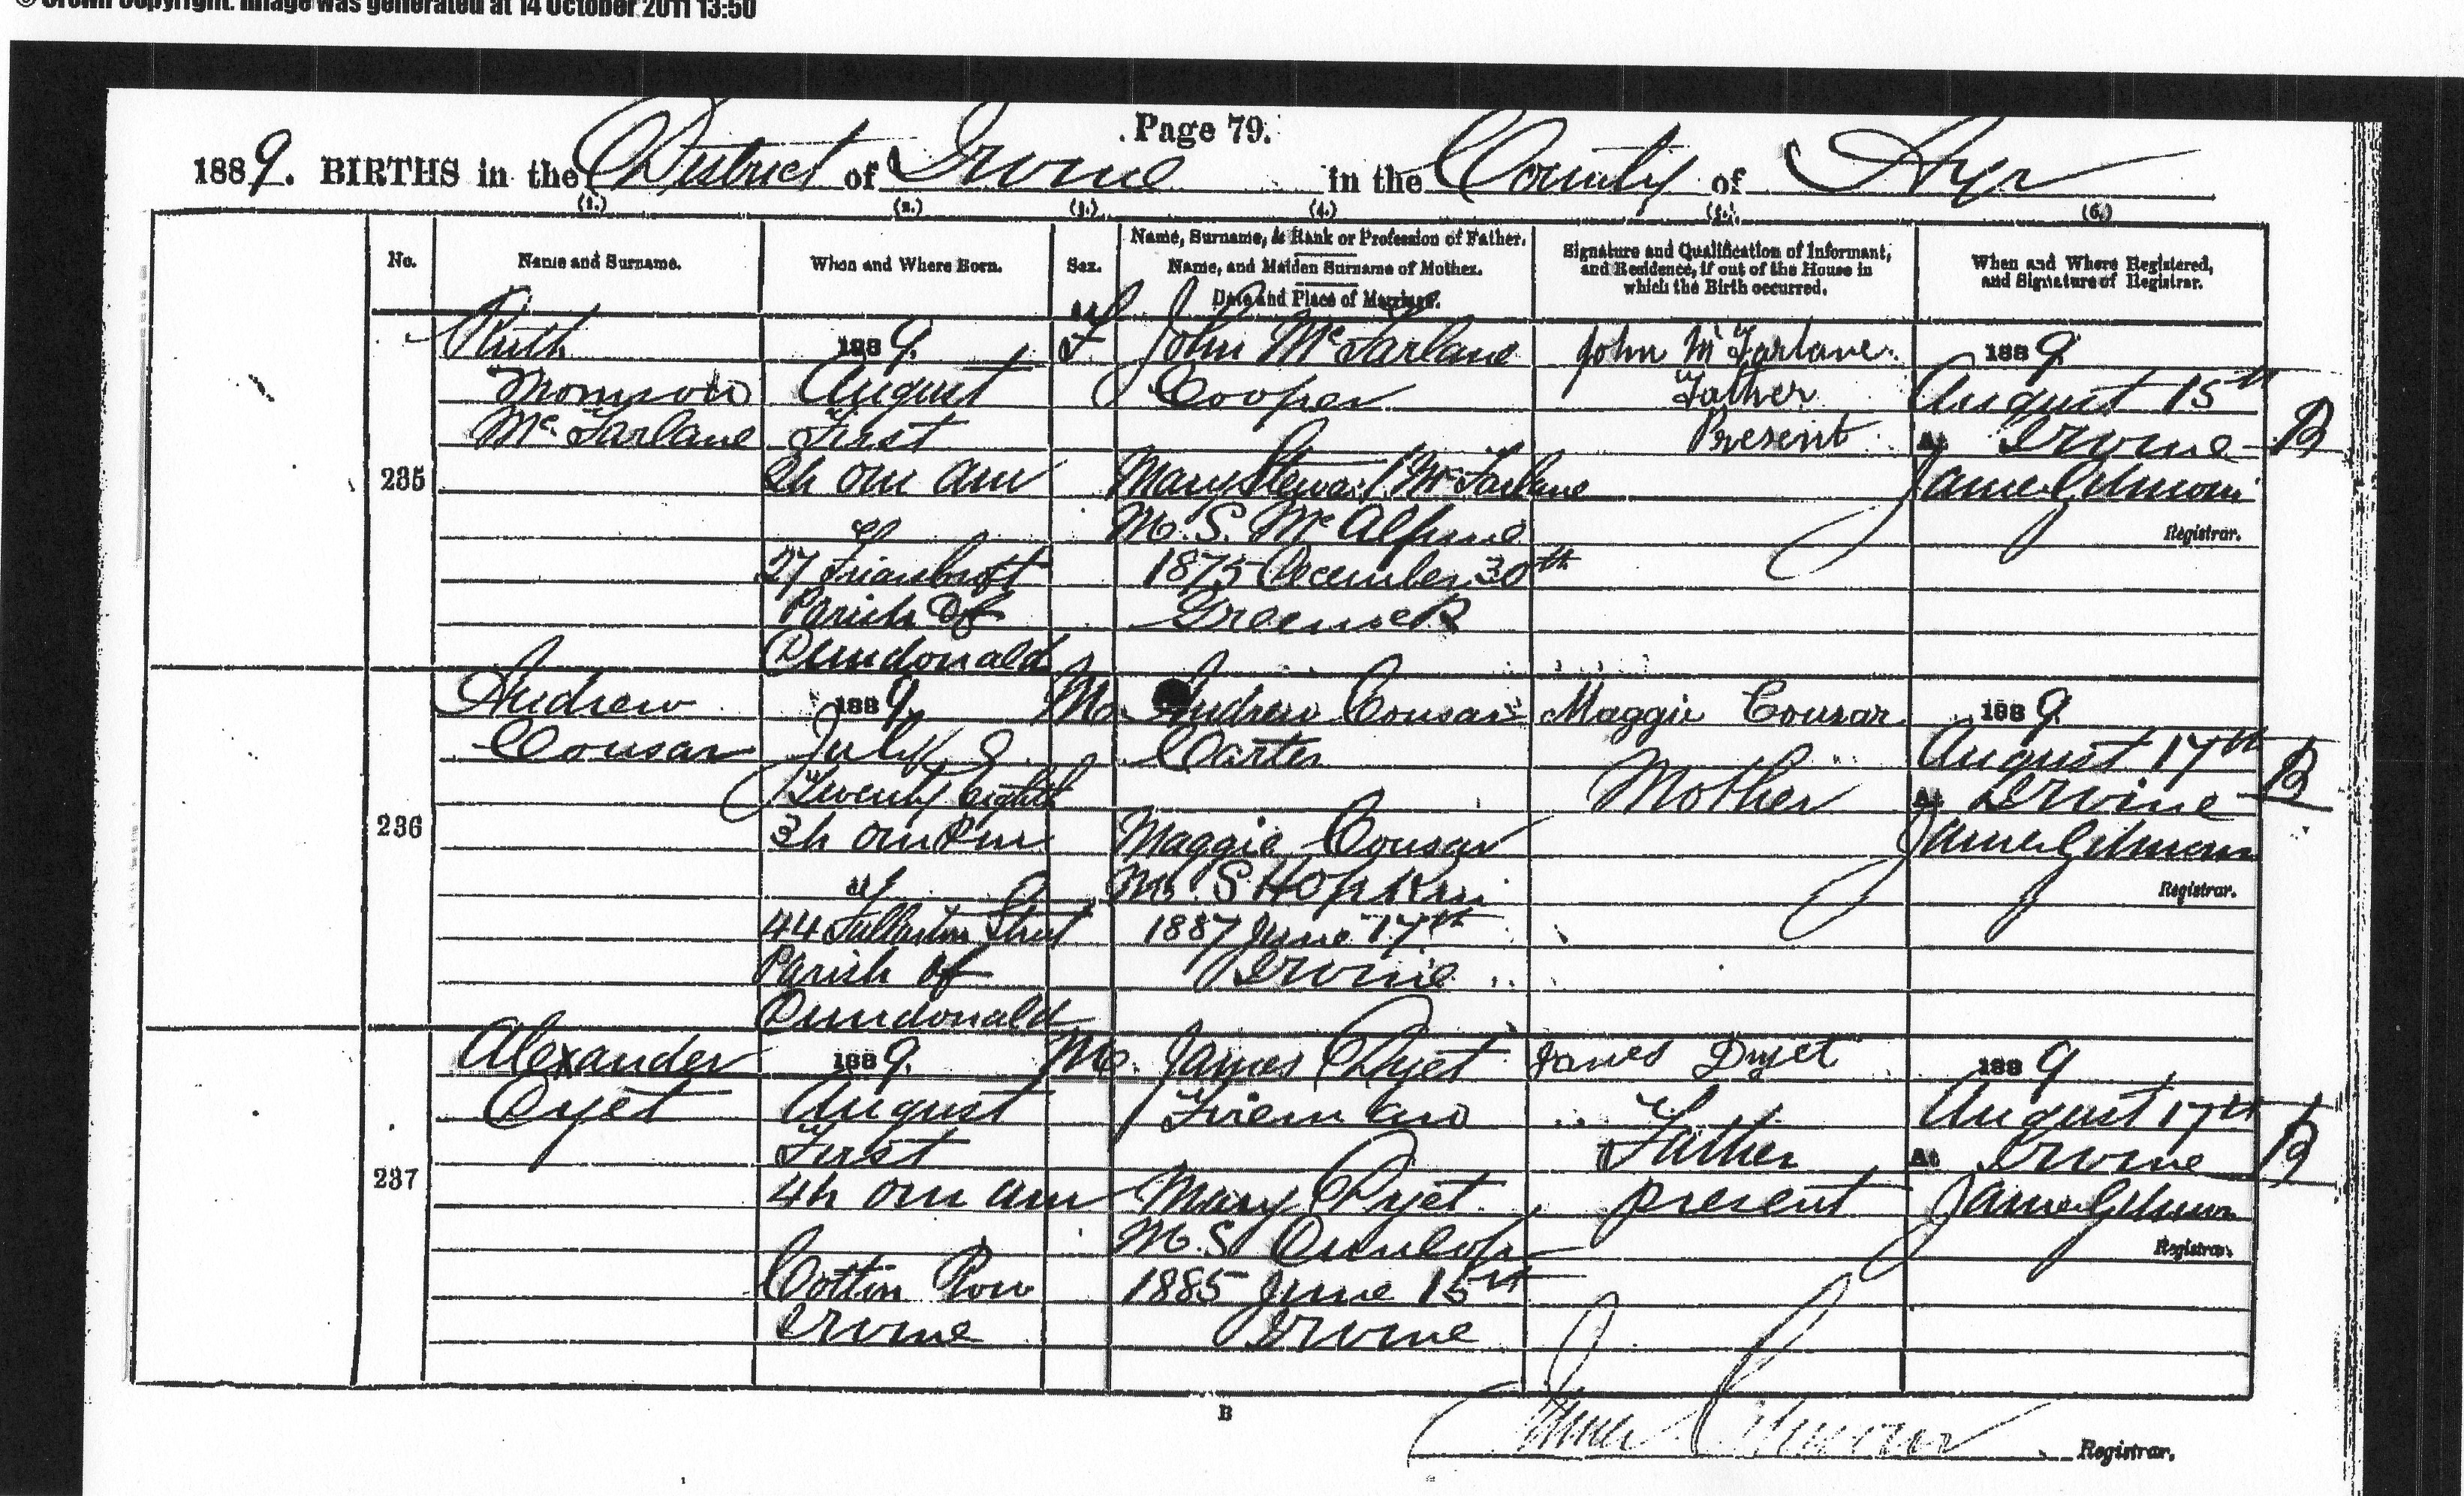 © Crown Copyright. Image was generated at 14 October 2011 13:50
Page 79.
1889. BIRTHS in the District of Irvine in the County of Ayr
(1.) (2.) (3.) (4.) (5.) (6.)
No.
Name and Surname.
When and Where Born.
Sex.
Name, Surname, & Rank or Profession of Father.
Name, and Maiden Surname of Mother.
Date and Place of Marriage.
Signature and Qualification of Informant,
and Residence, if out of the House in
which the Birth occurred.
When and Where Registered,
and Signature of Registrar.
235
Ruth
Thomson
McFarlane
1889.
August
First
2h 0m am
27 Friarscroft
Parish of
Dundonald
F
John McFarlane
Cooper
Mary Stewart McFarlane
M.S. McAlpine
1875 December 30th
Greenock
John McFarlane.
Father
Present
1889
August 15th
At Irvine
James
Registrar.
B
236
Andrew
Cousar
1889
July
Twenty eighth
3h 0m Pm
44 Fullarton Street
Parish of
Dundonald
M.
Andrew Cousar
Carter
Maggie Cousar
M.S Hopkin
1887 June 17th
Irvine
Maggie Cousar
Mother
1889
August 17th
At Irvine
James
Registrar.
B
237
Alexander
Dyet
1889.
August
First
4h 0m am
Cotton Row
Irvine
M.
James Dyet
Fireman
Mary Dyet
M.S. Dunlop
1885 June 15th
Irvine
James Dyet
Father
present
1889
August 17th
At Irvine
James
Registrar.
B
B
James
Registrar.